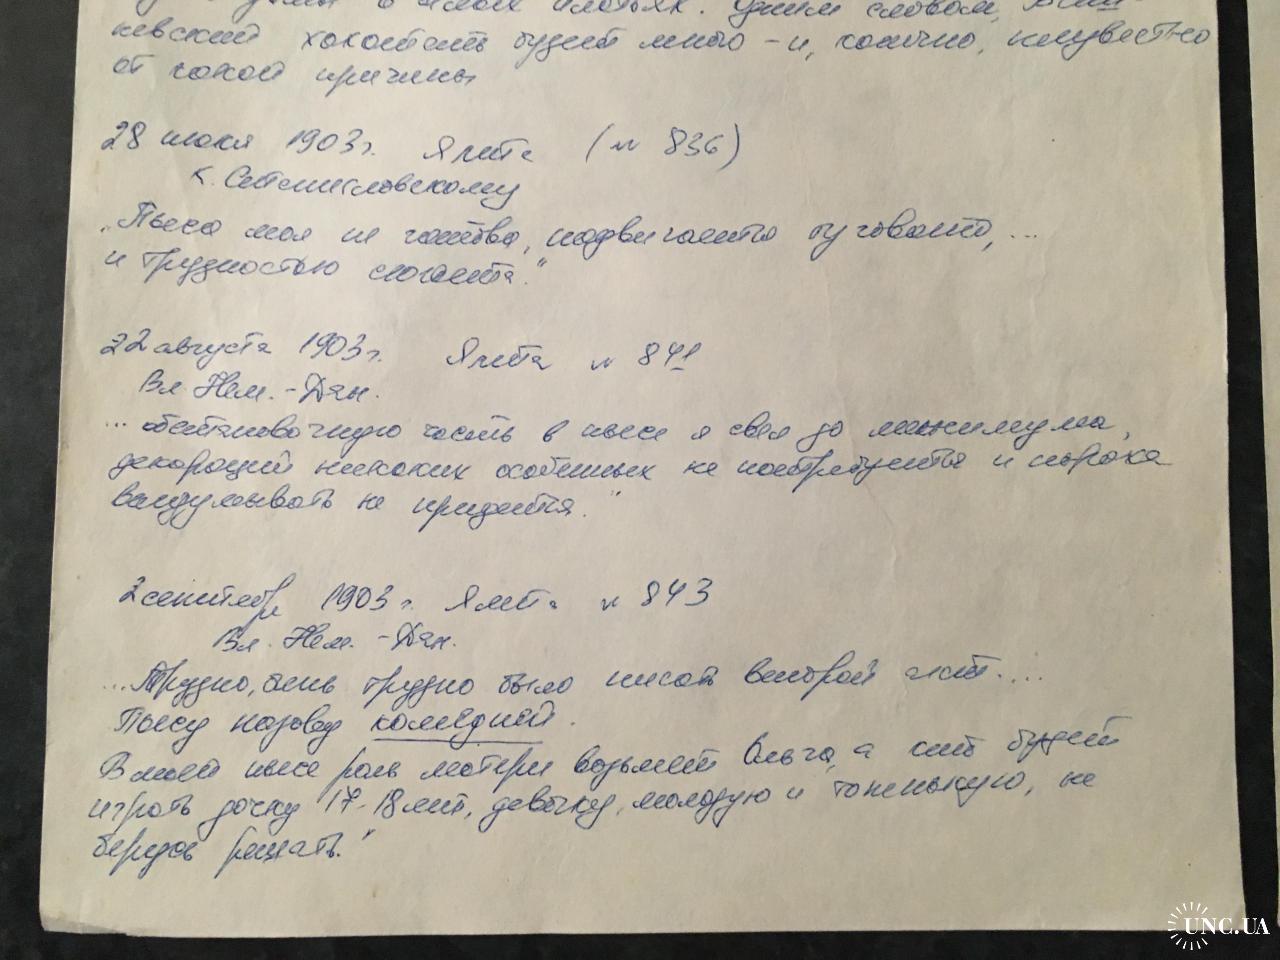 в белых платьях. Одним словом, Виш-
невский хохотать будет много - и, конечно, неизвестно
от какой причины
28 июля 1903 г. Ялта (№ 836)
К. Станиславскому
„Пьеса моя не готова, подвигается туговато, ...
и трудностью сюжета."
22 августа 1903 г. Ялта № 841
Вл. Нем.-Дан.
... обстановочную часть в пьесе я свел до минимума,
декораций никаких особенных не потребуется и пороха
выдумывать не придется."
2 сентября 1903 г. Ялта № 843
Вл. Нем. -Дан.
...Трудно, очень трудно было писать второй акт....
Пьесу назову комедией.
В моей пьесе роль матери возьмет Ольга, а кто будет
играть дочку 17-18 лет, девочку, молодую и тоненькую, не
берусь решать."
UNC.UA